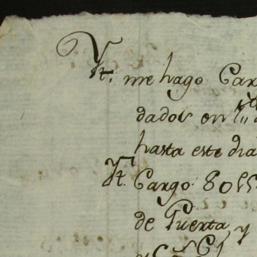 Yt. me hago Car
dados en
hasta este dia
Yt. Cargo. 8055
de Puerta, y